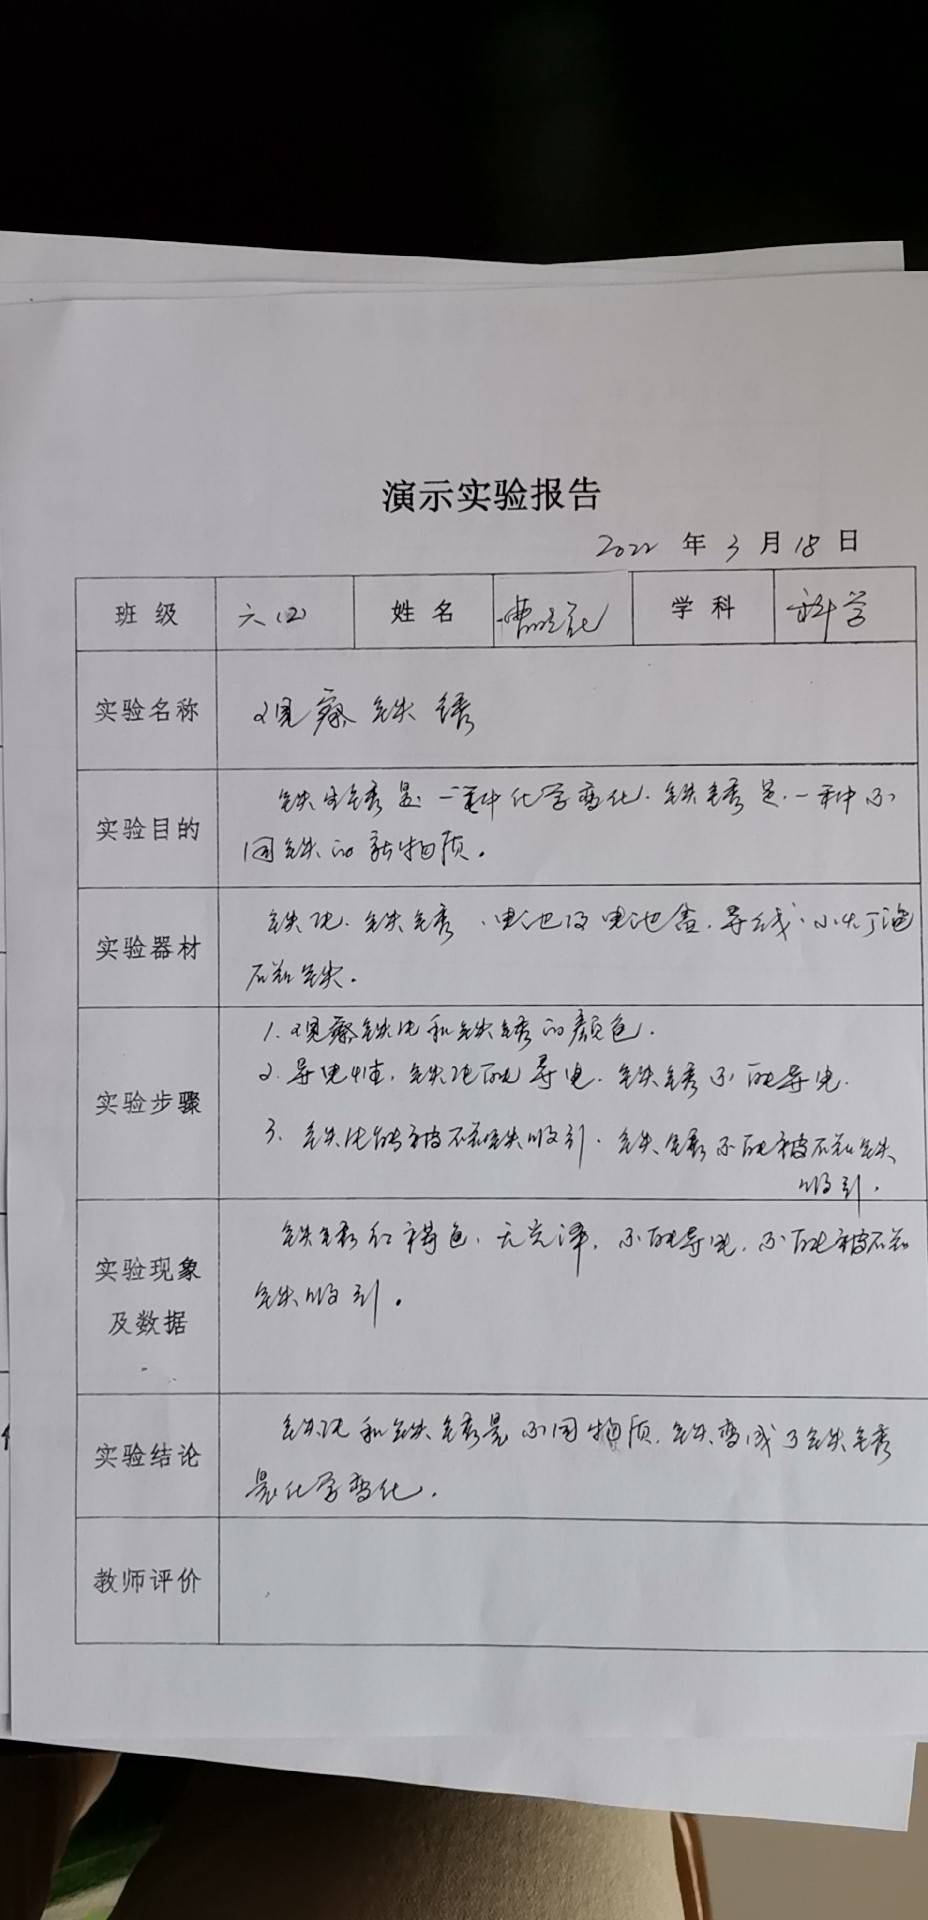 演示实验报告
2022 年 3 月 18 日
班 级 六(2) 姓 名 学 科 科学
实验名称 观察铁锈
实验目的 铁生锈是一种化学变化.铁锈是.一种不
同铁的新物质。
实验器材 铁.铁锈.电池及电池盒.导线.小灯泡
磁铁.
实验步骤
1.观察铁和铁锈的颜色.
2.导电性,铁能导电.铁锈不能导电.
3.铁能被磁铁吸引.铁锈不能被磁铁
吸引.
实验现象
及数据
铁锈红褐色.无光泽.不能导电.不能被磁
铁吸引。
实验结论 铁和铁锈是不同物质.铁变成了铁锈
是化学变化.
教师评价